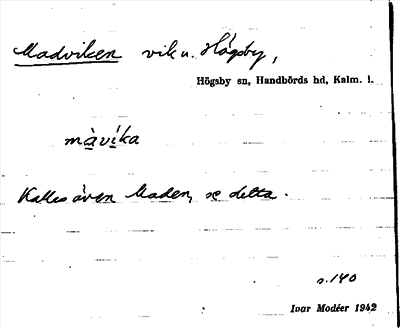 Madviken vik u. Högsby,
Högsby sn, Handbörds hd, Kalm. l.
màvíka
Kallas även Maden, se detta.
s. 140
Ivar Modéer 1942